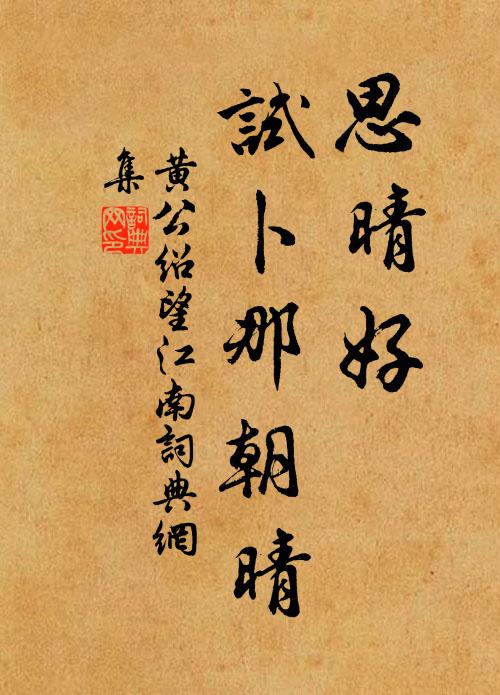 思晴好
試卜那朝晴
黃公紹望江南詞典網
集
詞典
網印